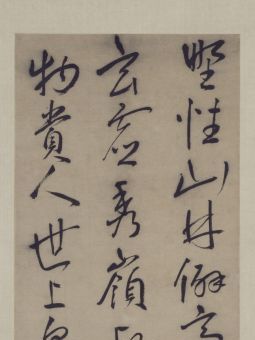 野性山林僻
玄虛秀嶺
物賞人世上